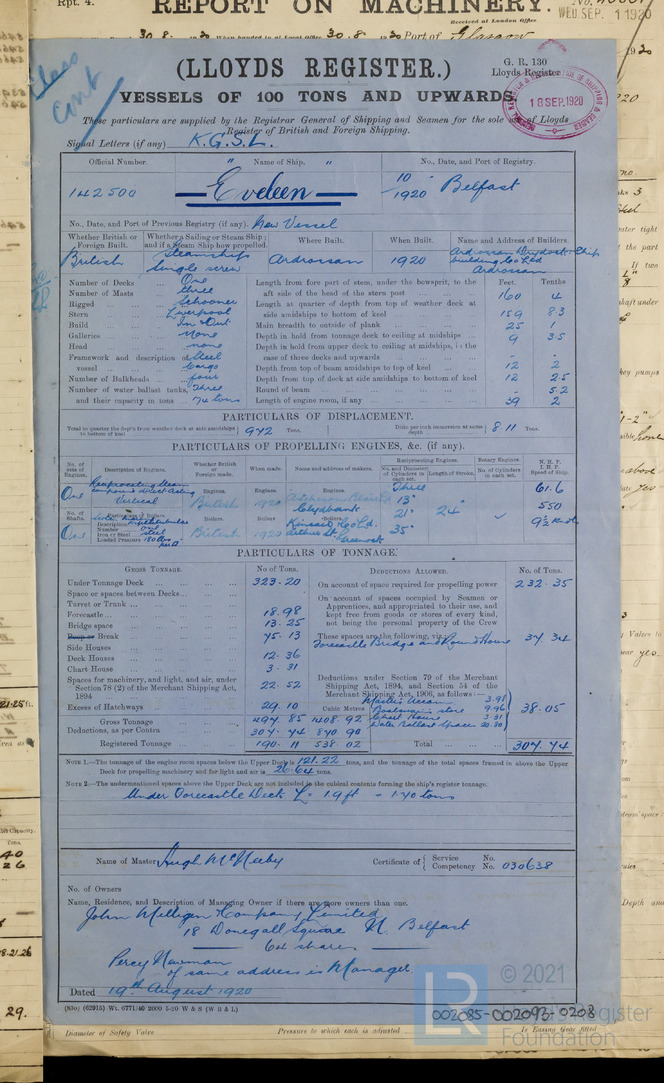 Rpt. 4.
REPORT ON MACHINERY.
Received at London Office
WED SEP. 1 1920
30. 8. 1920 When handed in at Local Office 30. 8. 1920 Port of Glasgow
(LLOYDS REGISTER.)
G. R. 130
Lloyds Register
VESSELS OF 100 TONS AND UPWARDS
18 SEP. 1920
These particulars are supplied by the Registrar General of Shipping and Seamen for the sole of Lloyds
Register of British and Foreign Shipping.
Signal Letters (if any) K.G.S.L.
Official Number. " Name of Ship. " No., Date, and Port of Registry.
142500 Eveleen 10/1920 Belfast
No., Date, and Port of Previous Registry (if any). New Vessel
Whether British or Foreign Built. Whether a Sailing or Steam Ship; and if a Steam Ship how propelled. Where Built. When Built. Name and Address of Builders.
British Steamship Single screw Ardrossan 1920 Ardrossan Drydock & Ship building Co Ltd Ardrossan
Number of Decks One
Number of Masts Three
Rigged Schooner
Stern Liverpool
Build In & Out
Galleries None
Head none
Framework and description of vessel Steel Cargo
Number of Bulkheads four
Number of water ballast tanks, and their capacity in tons Three 74 tons
Feet. Tenths
Length from fore part of stem, under the bowsprit, to the aft side of the head of the stern post 160 4
Length at quarter of depth from top of weather deck at side amidships to bottom of keel 159 83
Main breadth to outside of plank 25 1
Depth in hold from tonnage deck to ceiling at midships 9 35
Depth in hold from upper deck to ceiling at midships, in the case of three decks and upwards - -
Depth from top of beam amidships to top of keel 12 2
Depth from top of deck at side amidships to bottom of keel 12 25
Round of beam - 52
Length of engine room, if any 39 2
PARTICULARS OF DISPLACEMENT.
Total to quarter the depth from weather deck at side amidships to bottom of keel 942 Tons. Ditto per inch immersion at same depth 8.11 Tons.
PARTICULARS OF PROPELLING ENGINES, &c. (if any).
No. of sets of Engines. Description of Engines. Whether British or Foreign made. When made. Name and address of makers. Reciprocating Engines. Rotary Engines. N.H.P. I.H.P. Speed of Ship.
No. and Diameter of Cylinders in each set. Length of Stroke. No. of Cylinders in each set.
One Reciprocating Steam Compound Direct Acting Vertical
Engines. British Engines. 1920 Clydebank
Three 13" 21" 35" 24" 61.6 550 9½ Knot
No. of Shafts. Particulars of Boilers. Description Number Iron or Steel Loaded Pressure
One Steel 180 lbs
Boilers. British Boilers. 1920 Kincaid & Co Ld. Arthur St. Greenock
PARTICULARS OF TONNAGE.
GROSS TONNAGE. No of Tons.
Under Tonnage Deck 323.20
Space or spaces between Decks
Turret or Trunk
Forecastle 18.98
Bridge space 13.25
Poop or Break 75.13
Side Houses
Deck Houses 12.36
Chart House 3.31
Spaces for machinery, and light, and air, under Section 78 (2) of the Merchant Shipping Act, 1894 22.52
Excess of Hatchways 29.10
Gross Tonnage 497 85 1408.92
Deductions, as per Contra 307.74 870 90
Registered Tonnage 190.11 538 02
DEDUCTIONS ALLOWED. No. of Tons.
On account of space required for propelling power 232.35
On account of spaces occupied by Seamen or Apprentices, and appropriated to their use, and kept free from goods or stores of every kind, not being the personal property of the Crew
These spaces are the following, viz.: Forecastle Bridge and Round House 37 34
Deductions under Section 79 of the Merchant Shipping Act, 1894, and Section 54 of the Merchant Shipping Act, 1906, as follows:—
Cubic Metres
Master's Accom 3.97
Boatswain's store 9.96
Chart House 3.31
Water Ballast Space 20.80
38.05
Total 307.74
NOTE 1.—The tonnage of the engine room spaces below the Upper Deck is 121.22 tons, and the tonnage of the total spaces framed in above the Upper Deck for propelling machinery and for light and air is 26.64 tons.
NOTE 2.—The undermentioned spaces above the Upper Deck are not included in the cubical contents forming the ship's register tonnage.
Under Forecastle Deck L = 1.9 ft = 1.40 tons
Name of Master Hugh McNeeby Certificate of Service Competency No. No. 030638
No. of Owners
Name, Residence, and Description of Managing Owner if there are more owners than one.
John Milligen & Company Limited
18 Donegall Square N. Belfast
64 shares
Percy Newman
of same address is Manager.
Dated 19th August 1920
(83o) (62915) Wt. 6771/40 2000 5-20 W & S (W B & L)
Diameter of Safety Valve Pressure to which each is adjusted Is Easing Gear fitted
002085-002093-0208
LR © 2021
Lloyd's Register
Foundation